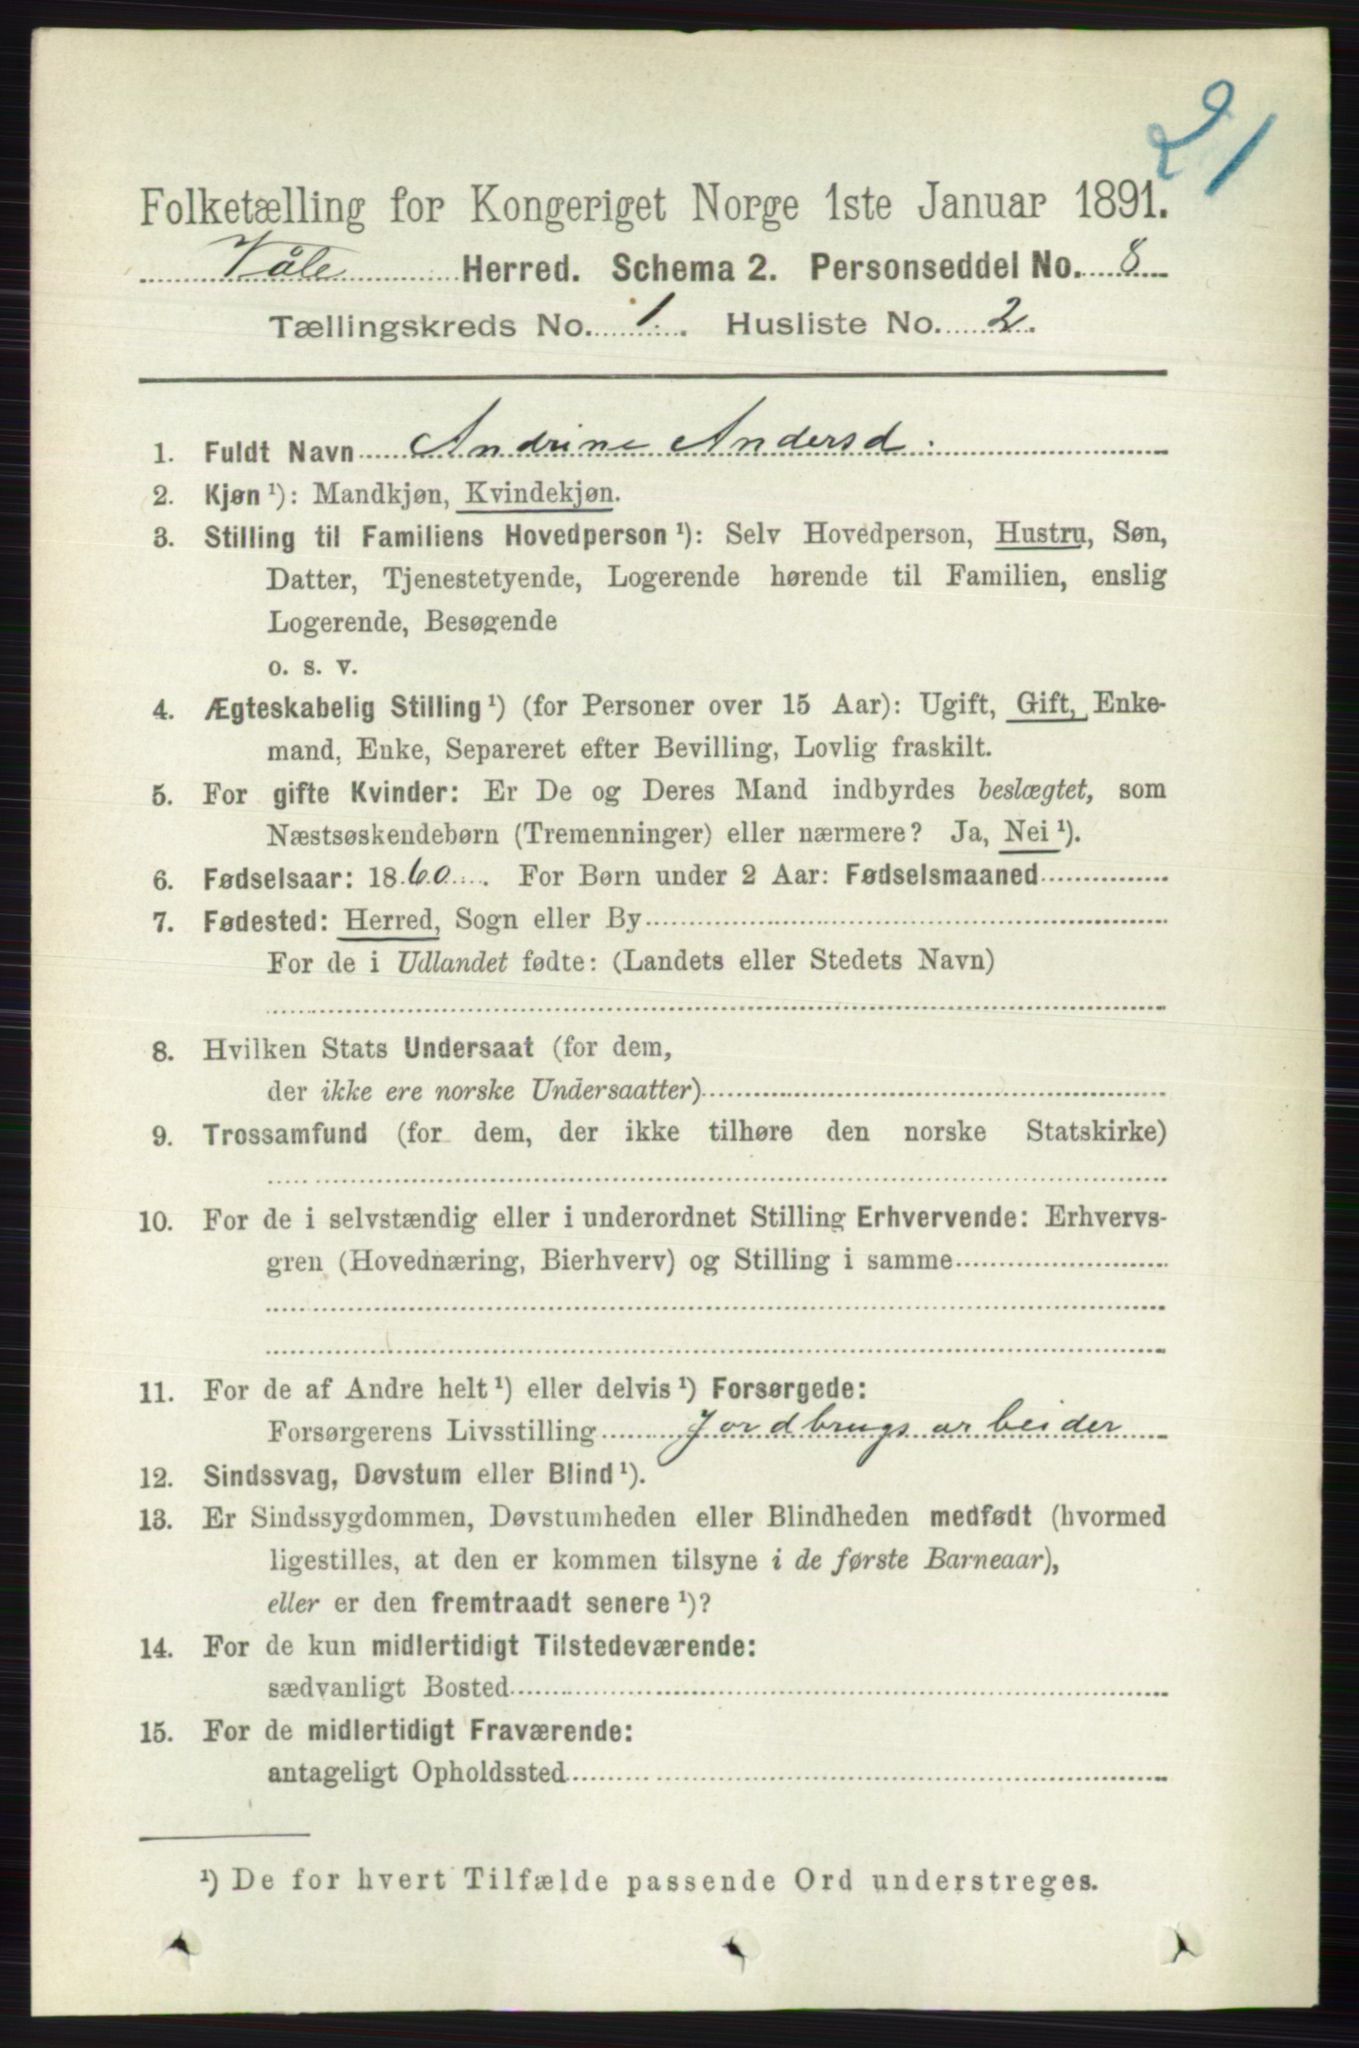 21
Folketælling for Kongeriget Norge 1ste Januar 1891.
Våle Herred. Schema 2. Personseddel No. 8
Tællingskreds No. 1. Husliste No. 2.
1. Fuldt Navn Andrine Andersd.
2. Kjøn ¹): Mandkjøn, Kvindekjøn.
3. Stilling til Familiens Hovedperson ¹): Selv Hovedperson, Hustru, Søn,
Datter, Tjenestetyende, Logerende hørende til Familien, enslig
Logerende, Besøgende
o. s. v.
4. Ægteskabelig Stilling ¹) (for Personer over 15 Aar): Ugift, Gift, Enke-
mand, Enke, Separeret efter Bevilling, Lovlig fraskilt.
5. For gifte Kvinder: Er De og Deres Mand indbyrdes beslægtet, som
Næstsøskendebørn (Tremenninger) eller nærmere? Ja, Nei ¹).
6. Fødselsaar: 1860. For Børn under 2 Aar: Fødselsmaaned
7. Fødested: Herred, Sogn eller By
For de i Udlandet fødte: (Landets eller Stedets Navn)
8. Hvilken Stats Undersaat (for dem,
der ikke ere norske Undersaatter)
9. Trossamfund (for dem, der ikke tilhøre den norske Statskirke)
10. For de i selvstændig eller i underordnet Stilling Erhvervende: Erhvervs-
gren (Hovednæring, Bierhverv) og Stilling i samme
11. For de af Andre helt ¹) eller delvis ¹) Forsørgede:
Forsørgerens Livsstilling Jordbrugsarbeider
12. Sindssvag, Døvstum eller Blind ¹).
13. Er Sindssygdommen, Døvstumheden eller Blindheden medfødt (hvormed
ligestilles, at den er kommen tilsyne i de første Barneaar),
eller er den fremtraadt senere ¹)?
14. For de kun midlertidigt Tilstedeværende:
sædvanligt Bosted
15. For de midlertidigt Fraværende:
antageligt Opholdssted
¹) De for hvert Tilfælde passende Ord understreges.